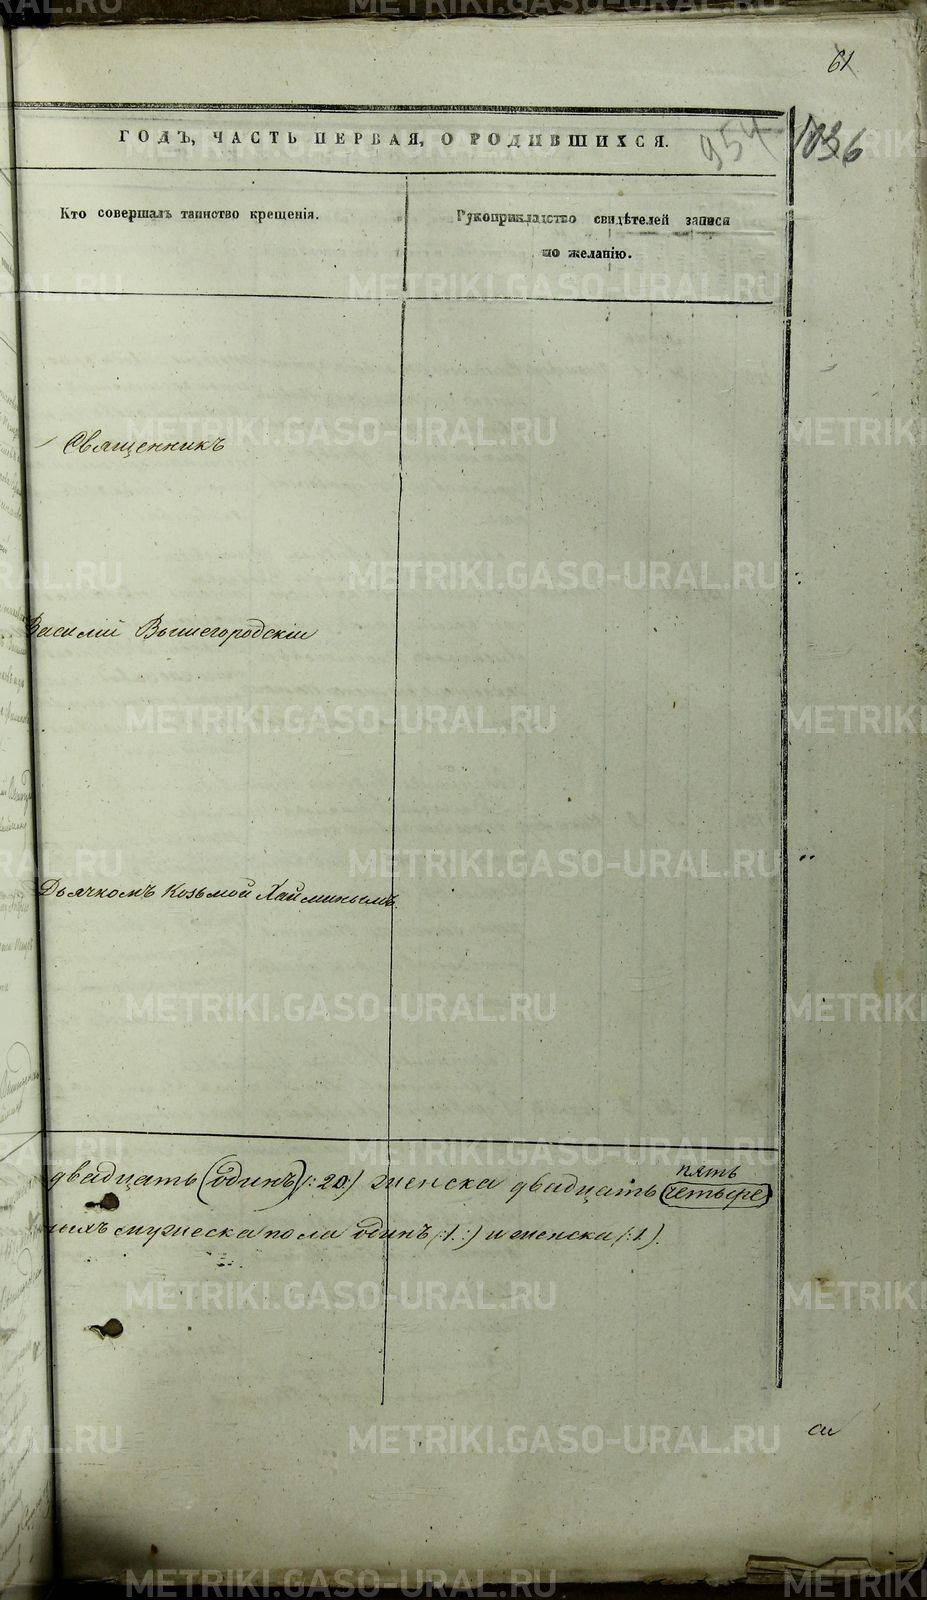 61
ГОДЪ, ЧАСТЬ ПЕРВАЯ, О РОДИВШИХСЯ.
954
1036
Кто совершалъ таинство крещенія.
Рукоприкладство свидѣтелей записи
по желанію.
Священникъ
Василій Вышегородскій
Дьячкомъ Козьмой Хайминымъ.
пять
двадцать (одинъ) (:20:) женска двадцать (четыре)
мужеска пола одинъ (:1:) и женска (:1:).
METRIKI.GASO-URAL.RU